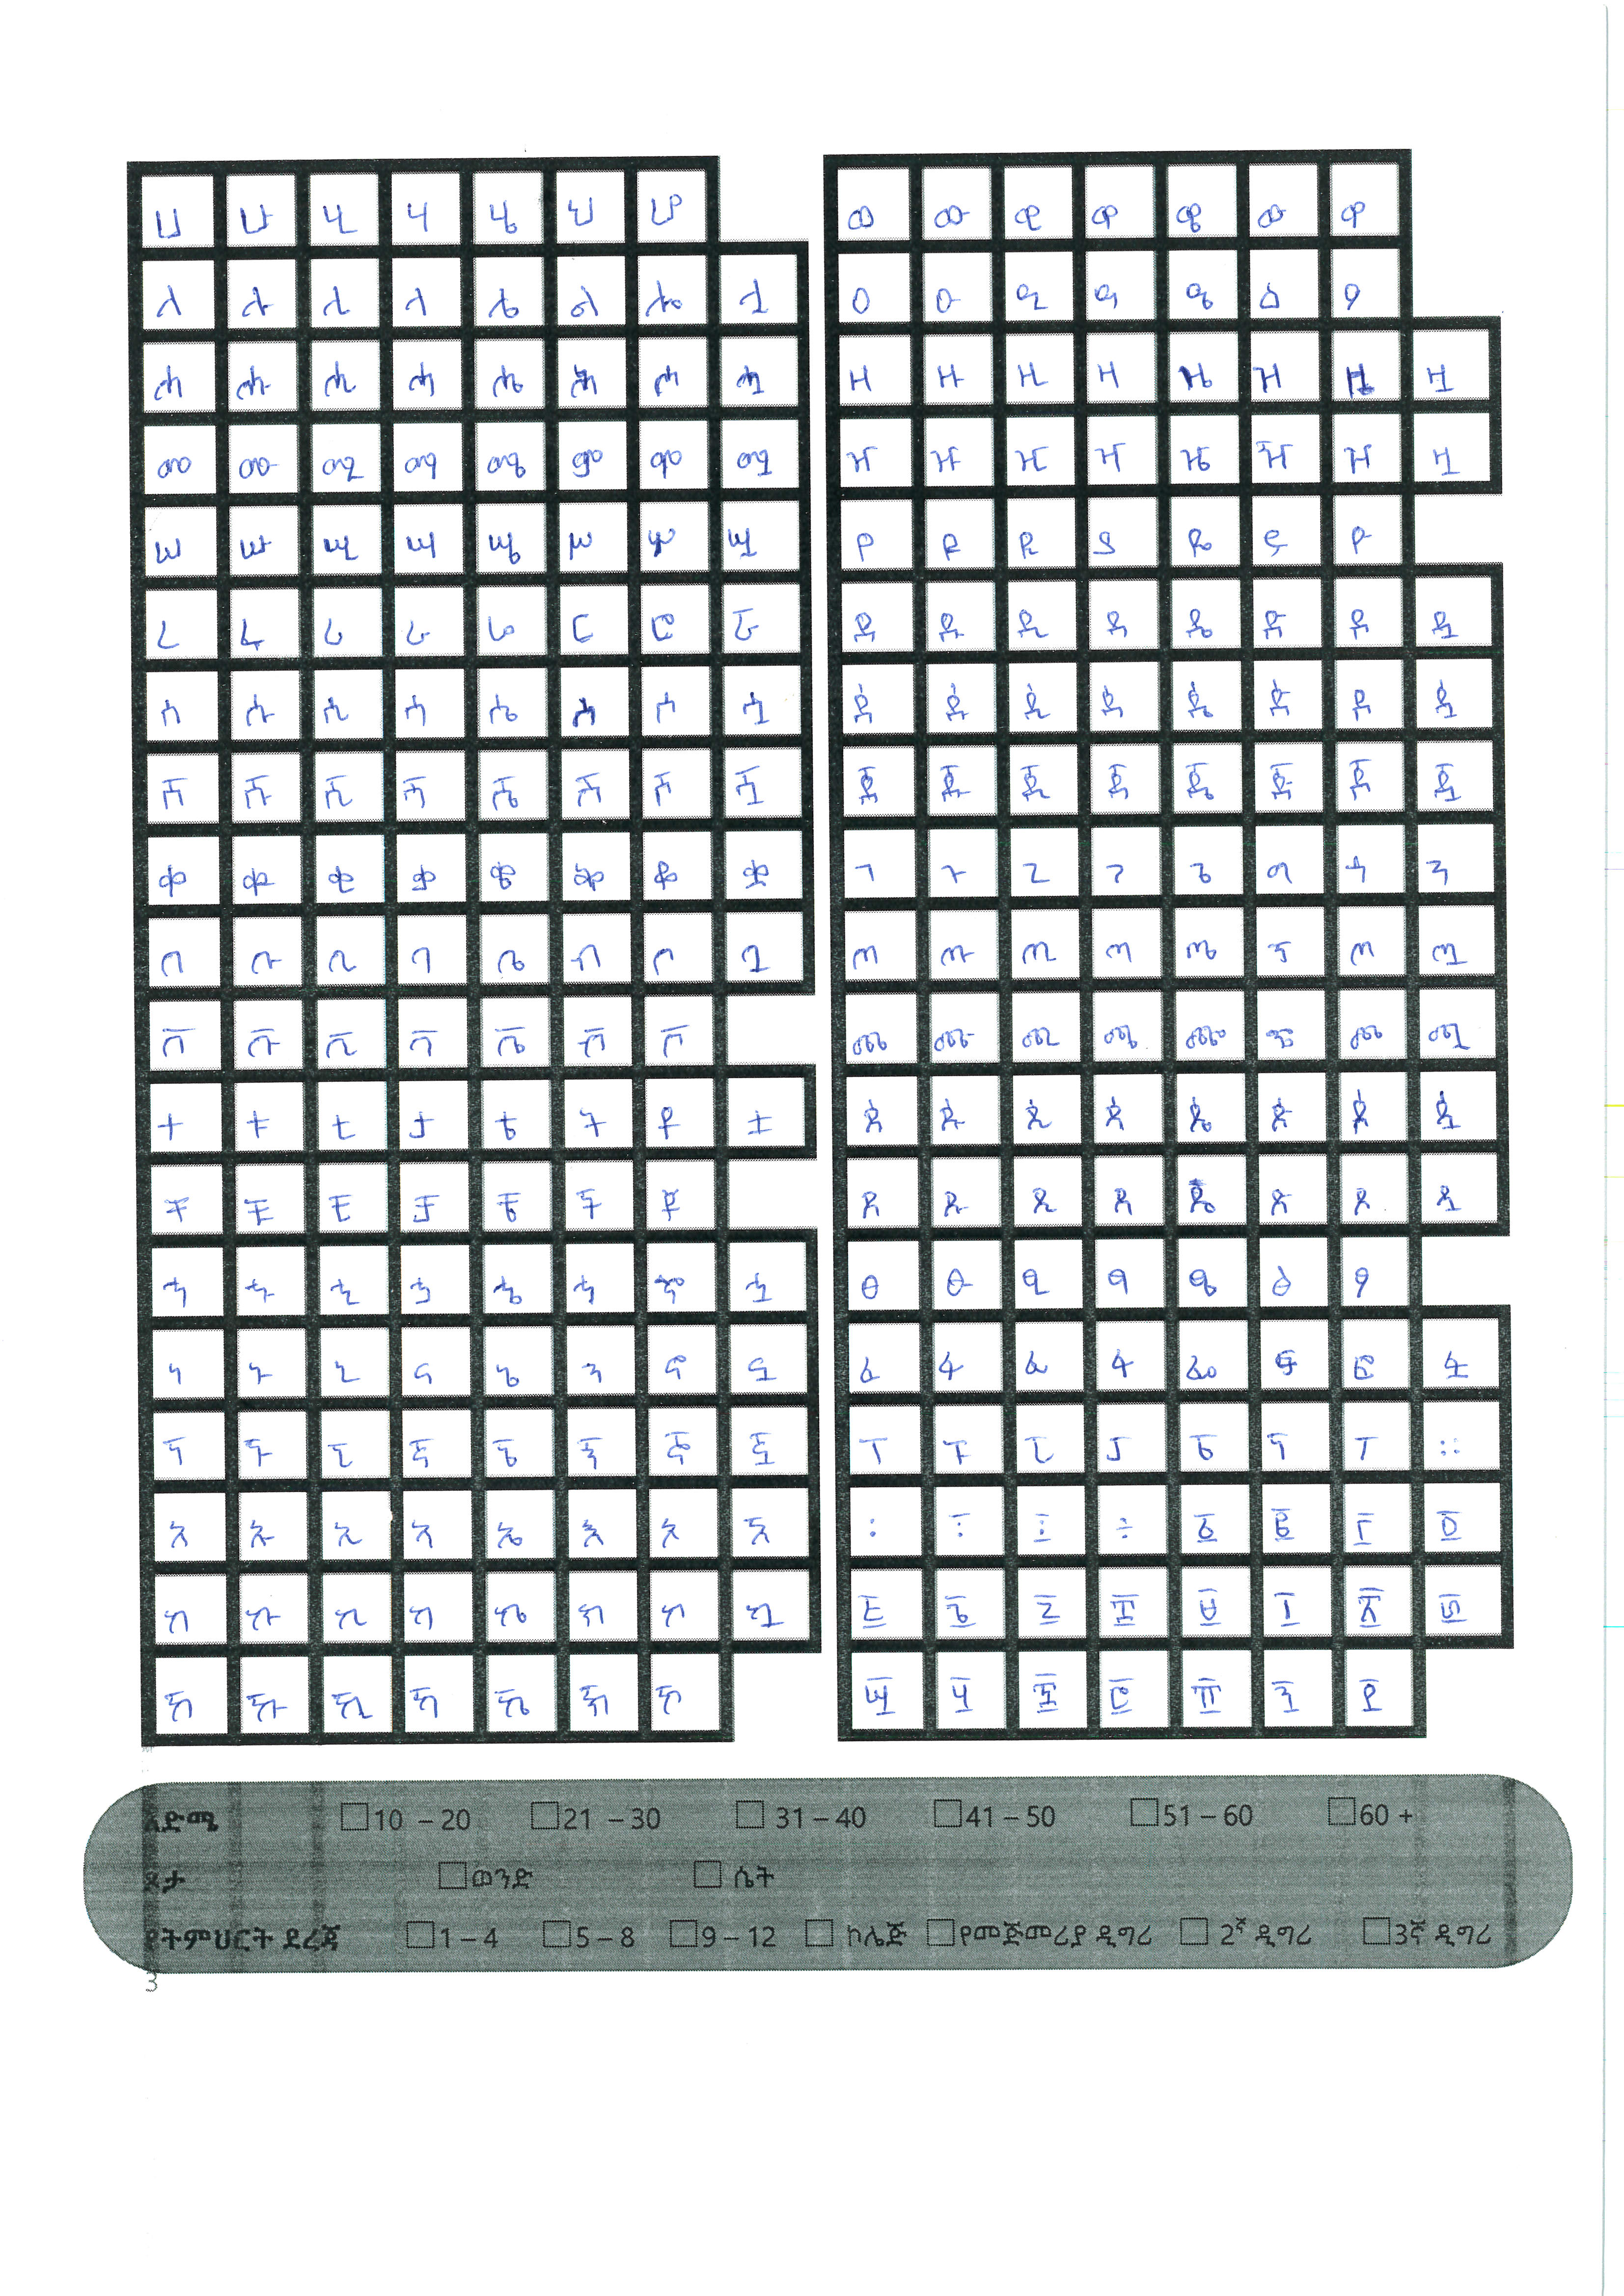 ሀ ሁ ሂ ሃ ሄ ህ ሆ
ለ ሉ ሊ ላ ሌ ል ሎ ሏ
ሐ ሑ ሒ ሓ ሔ ሕ ሖ ሗ
መ ሙ ሚ ማ ሜ ም ሞ ሟ
ሠ ሡ ሢ ሣ ሤ ሥ ሦ ሧ
ረ ሩ ሪ ራ ሬ ር ሮ ሯ
ሰ ሱ ሲ ሳ ሴ ስ ሶ ሷ
ሸ ሹ ሺ ሻ ሼ ሽ ሾ ሿ
ቀ ቁ ቂ ቃ ቄ ቅ ቆ ቋ
በ ቡ ቢ ባ ቤ ብ ቦ ቧ
ቨ ቩ ቪ ቫ ቬ ቭ ቮ
ተ ቱ ቲ ታ ቴ ት ቶ ቷ
ቸ ቹ ቺ ቻ ቼ ች ቾ
ኀ ኁ ኂ ኃ ኄ ኅ ኆ ኋ
ነ ኑ ኒ ና ኔ ን ኖ ኗ
ኘ ኙ ኚ ኛ ኜ ኝ ኞ ኟ
አ ኡ ኢ ኣ ኤ እ ኦ ኧ
ከ ኩ ኪ ካ ኬ ክ ኮ ኳ
ኸ ኹ ኺ ኻ ኼ ኽ ኾ
ወ ዉ ዊ ዋ ዌ ው ዎ
ዐ ዑ ዒ ዓ ዔ ዕ ዖ
ዘ ዙ ዚ ዛ ዜ ዝ ዞ ዟ
ዠ ዡ ዢ ዣ ዤ ዥ ዦ ዧ
የ ዩ ዪ ያ ዬ ይ ዮ
ደ ዱ ዲ ዳ ዴ ድ ዶ ዷ
ዸ ዹ ዺ ዻ ዼ ዽ ዾ ዿ
ጀ ጁ ጂ ጃ ጄ ጅ ጆ ጇ
ገ ጉ ጊ ጋ ጌ ግ ጎ ጓ
ጠ ጡ ጢ ጣ ጤ ጥ ጦ ጧ
ጨ ጩ ጪ ጫ ጬ ጭ ጮ ጯ
ጰ ጱ ጲ ጳ ጴ ጵ ጶ ጷ
ጸ ጹ ጺ ጻ ጼ ጽ ጾ ጿ
ፀ ፁ ፂ ፃ ፄ ፅ ፆ
ፈ ፉ ፊ ፋ ፌ ፍ ፎ ፏ
ፐ ፑ ፒ ፓ ፔ ፕ ፖ ።
፡ ፥ ፤ ፩ ፪ ፫ ፬
፭ ፮ ፯ ፰ ፱ ፲ ፳ ፴
፵ ፶ ፷ ፸ ፹ ፺ ፻
እድሜ □10 – 20 □21 – 30 □ 31 – 40 □41 – 50 □51 – 60 □60 +
ጾታ □ወንድ □ ሴት
የትምህርት ደረጃ □1 – 4 □5 – 8 □9 – 12 □ ኮሌጅ □የመጅመሪያ ዲግሪ □ 2ኛ ዲግሪ □3ኛ ዲግሪ
3